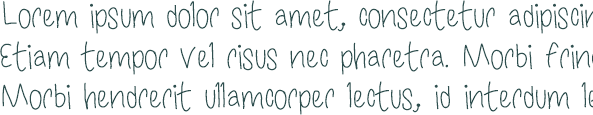 Lorem ipsum dolor sit amet, consectetur adipiscin
Etiam tempor vel risus nec pharetra. Morbi frin
Morbi hendrerit ullamcorper lectus, id interdum le